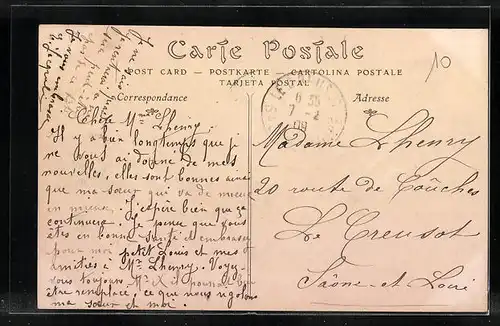 Carte Postale
POST CARD - POSTKARTE - CARTOLINA POSTALE
TARJETA POSTAL
Correspondance
Adresse
10
6 35
7 - 2
09
Chère Mme Lhenry.
Il y a bien longtemps que je
ne vous ai donné de mes
nouvelles, elles sont bonnes ainsi
que ma sœur qui va de mieux
en mieux. J'espère bien que ça
continuera. Je pense que vous
êtes en bonne santé et embrassez
pour moi petit Louis et mes
amitiés à Mr Lhenry. Voyez-
vous toujours Mr
être remplacé, ce que nous rigolons
ma sœur et moi.
Madame Lhenry
20 route de Couches
Le Creusot
Saône-et-Loire